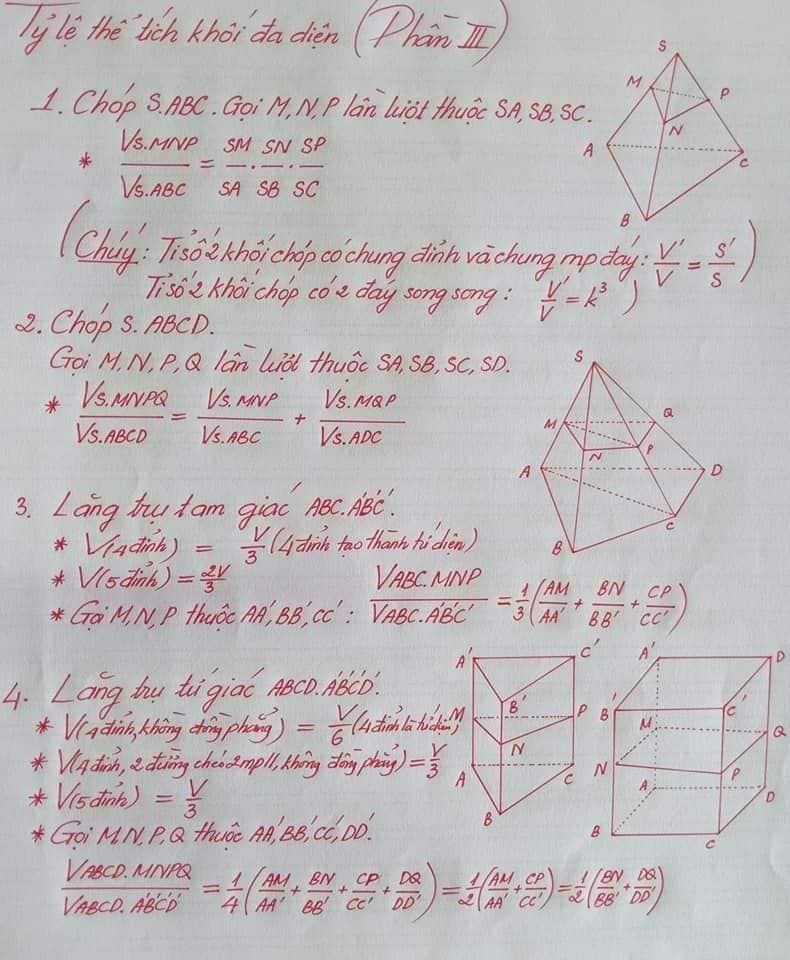 Tỷ lệ thể tích khối đa diện (Phần III)
1. Chóp S.ABC. Gọi M, N, P lần lượt thuộc SA, SB, SC.
* V_S.MNP / V_S.ABC = SM/SA . SN/SB . SP/SC
S
M
P
N
A
C
B
(Chú ý: Tỉ số 2 khối chóp có chung đỉnh và chung mp đáy: V'/V = S'/S
Tỉ số 2 khối chóp có 2 đáy song song: V'/V = k³)
2. Chóp S.ABCD.
Gọi M, N, P, Q lần lượt thuộc SA, SB, SC, SD.
* V_S.MNPQ / V_S.ABCD = V_S.MNP / V_S.ABC + V_S.MQP / V_S.ADC
S
M
Q
N
P
A
D
C
B
3. Lăng trụ tam giác ABC.A'B'C'.
* V(4 đỉnh) = V/3 (4 đỉnh tạo thành tứ diện)
* V(5 đỉnh) = 2V/3
* Gọi M, N, P thuộc AA', BB', CC': V_ABC.MNP / V_ABC.A'B'C' = 1/3 (AM/AA' + BN/BB' + CP/CC')
A'
C'
B'
M
P
N
A
C
B
4. Lăng trụ tứ giác ABCD.A'B'C'D'.
* V(4 đỉnh, không đồng phẳng) = V/6 (4 đỉnh là tứ diện)
* V(4 đỉnh, 2 đường chéo 2 mp //, không đồng phẳng) = V/3
* V(5 đỉnh) = V/3
* Gọi M, N, P, Q thuộc AA', BB', CC', DD'.
V_ABCD.MNPQ / V_ABCD.A'B'C'D' = 1/4 (AM/AA' + BN/BB' + CP/CC' + DQ/DD') = 1/2 (AM/AA' + CP/CC') = 1/2 (BN/BB' + DQ/DD')
A'
D
B'
C'
M
Q
N
P
A
D
B
C